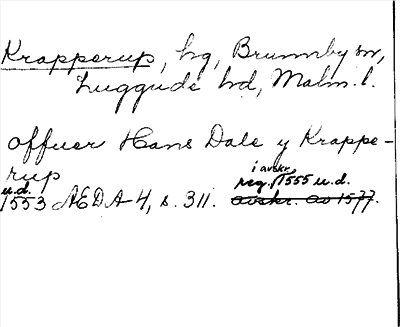 Krapperup, hg, Brunnby sn,
Luggude hd, Malm. l.
offuer Hans Dale y Krappe-
rup
i avskr.
u.d. reg. 1555 u.d.
1553 AEDA 4, s. 311. avskr. av 1577.